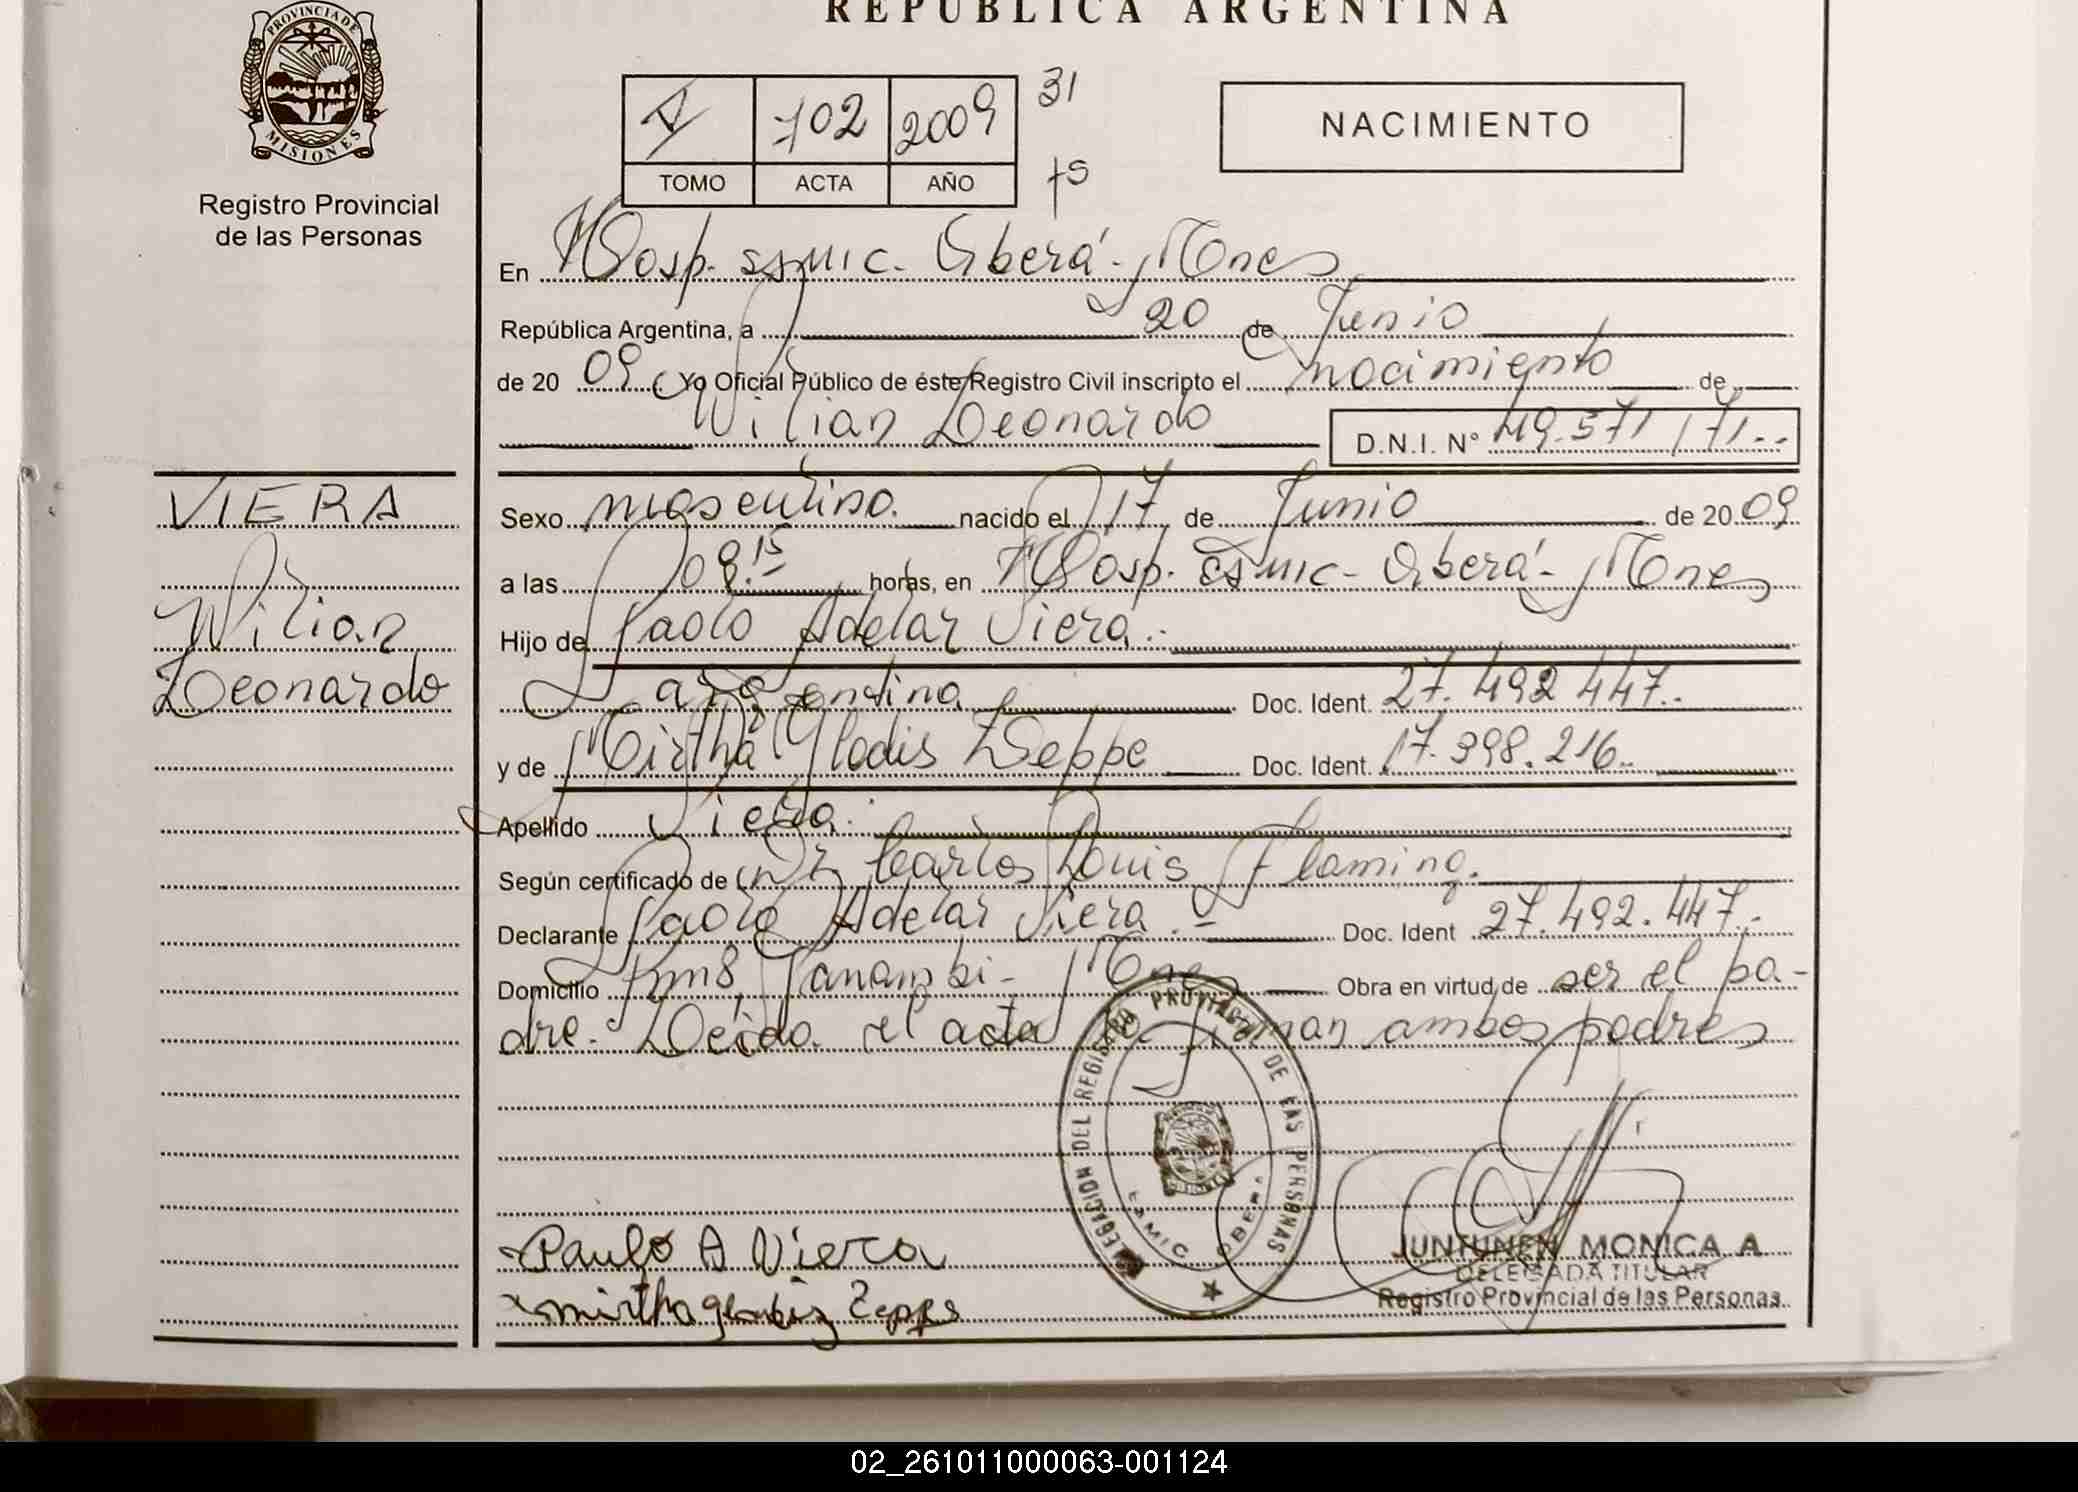 REPUBLICA ARGENTINA
PROVINCIA DE MISIONES
Registro Provincial
de las Personas
102 2009 31
TOMO ACTA AÑO
NACIMIENTO
En Hosp. samic. Oberá. Mnes
República Argentina, a 20 de Junio
de 20 09 Yo Oficial Público de éste Registro Civil inscripto el nacimiento de
Wilian Leonardo D.N.I. N° 49.571171..
VIERA
Wilian
Leonardo
Sexo masculino. nacido el 17 de Junio de 20 09
a las 08.15 horas, en Hosp. samic - Oberá - Mnes
Hijo de Paolo Adelar Viera.-
argentina Doc. Ident. 27.492 447..
y de Mirtha Gladis Zeppe Doc. Ident. 17.398.216..
Apellido Viera.
Según certificado de Dr Carlos Luis Flaming.
Declarante Paolo Adelar Viera.- Doc. Ident 27.492.447.-
Domicilio km8, Panambi - Mnes Obra en virtud de ser el pa-
dre. Leída el acta la firman ambos padres
DELEGACION DEL REGISTRO PROVINCIAL DE LAS PERSONAS
SAMIC OBERA
Paulo A Viera
JUNTUNEN MONICA A
DELEGADA TITULAR
Registro Provincial de las Personas
mirtha Zepps
02_261011000063-001124